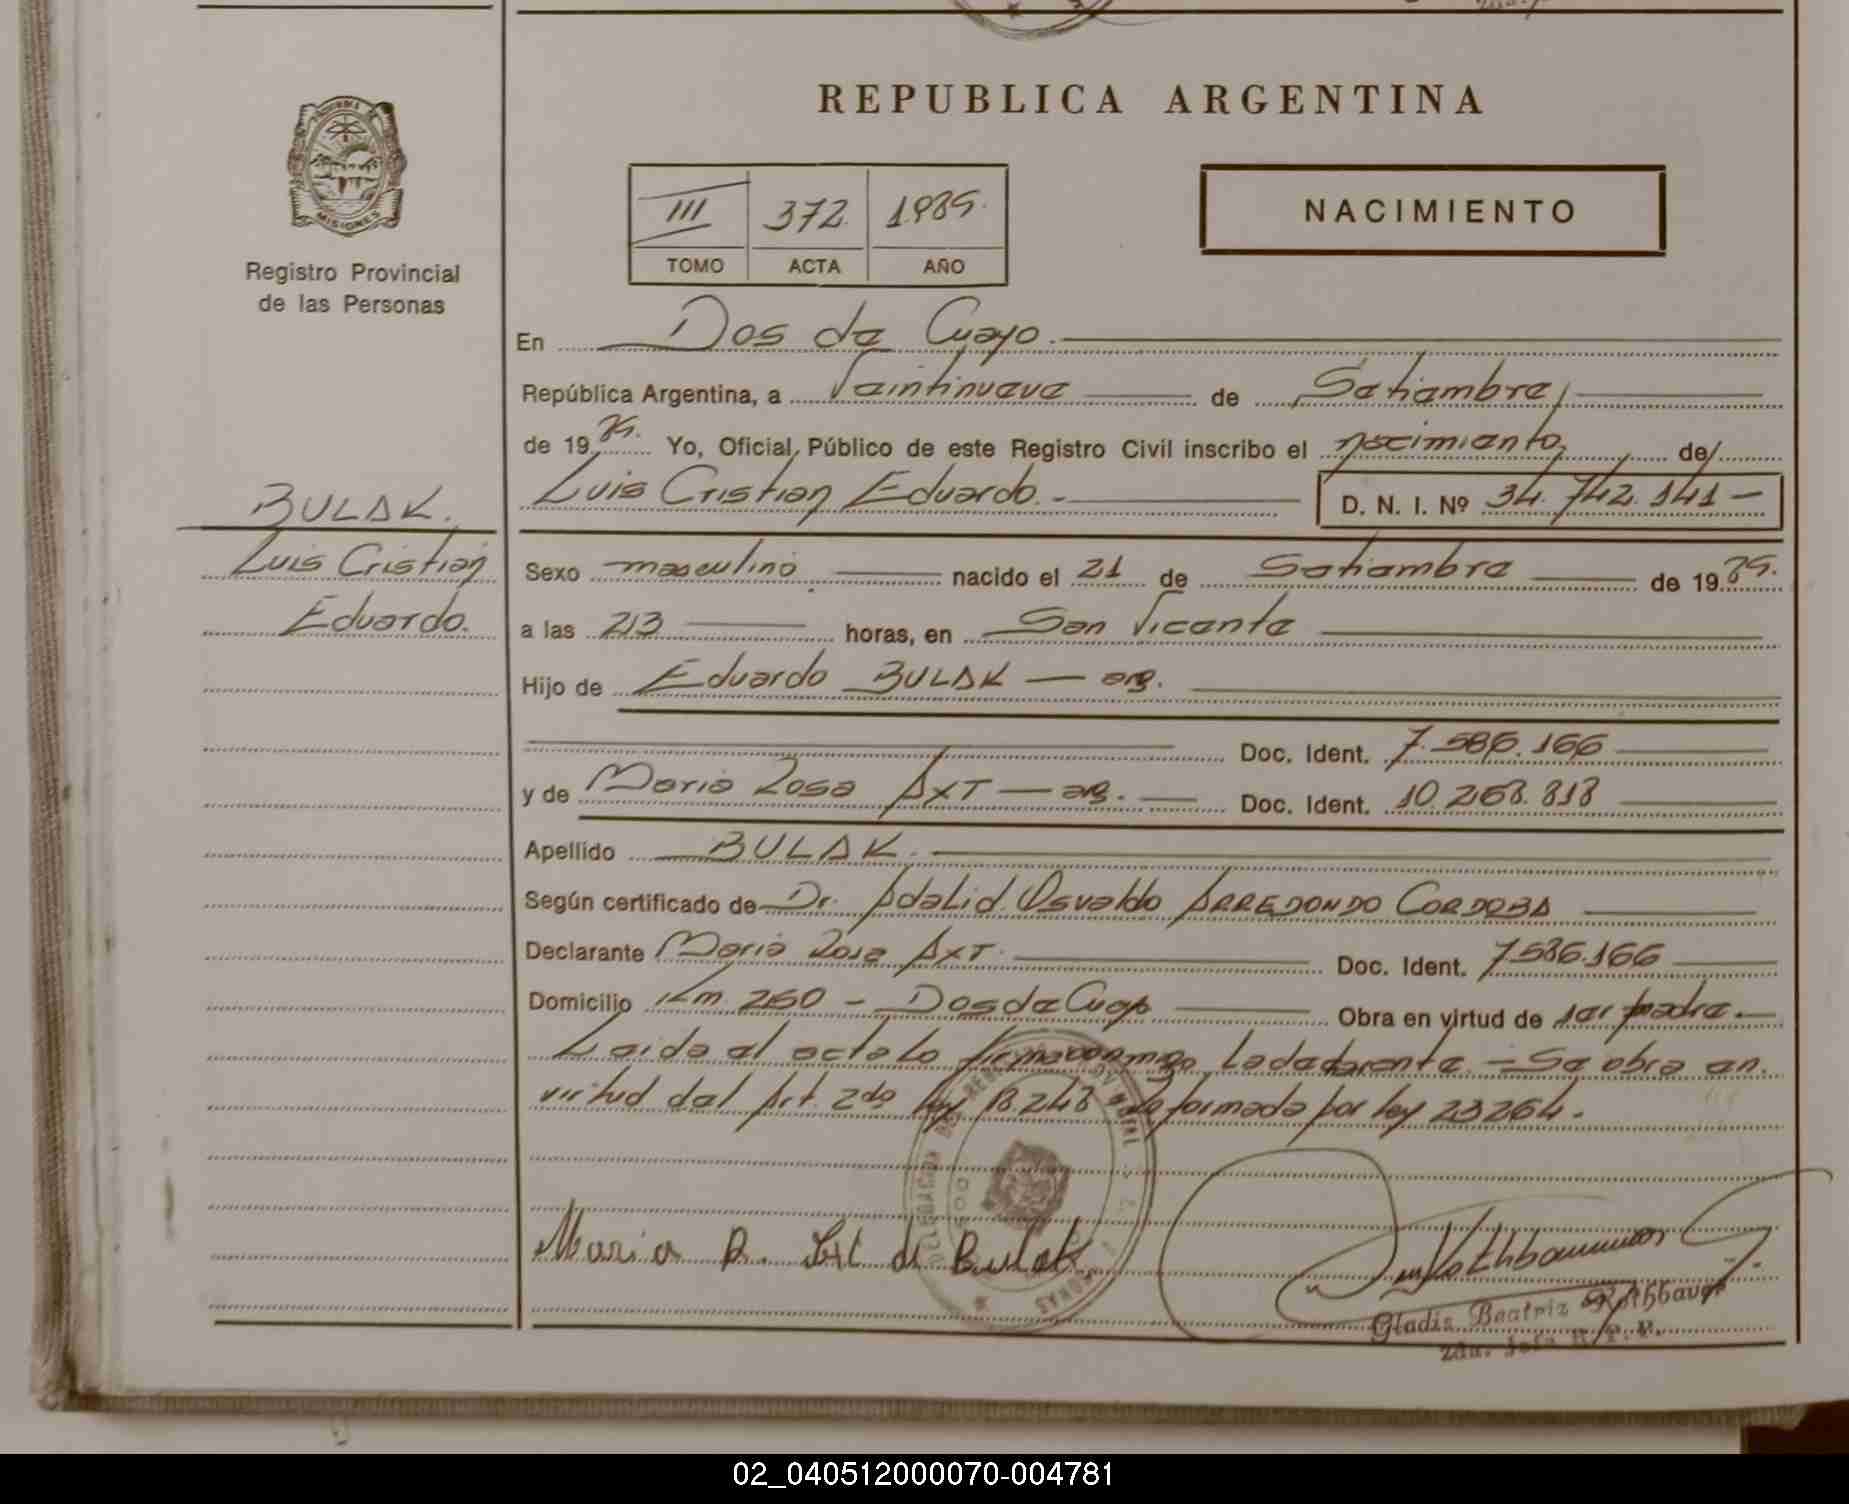 REPUBLICA ARGENTINA
MISIONES
Registro Provincial
de las Personas
III 372 1989.
TOMO ACTA AÑO
NACIMIENTO
En Dos de Mayo.
República Argentina, a Veintinueve de Setiembre
de 1989. Yo, Oficial Público de este Registro Civil inscribo el nacimiento de
Luis Cristian Eduardo.- D. N. I. Nº 34.742.141-
BULAK.
Luis Cristian
Eduardo.
Sexo masculino nacido el 21 de Setiembre de 1989.
a las 23 horas, en San Vicente
Hijo de Eduardo BULAK — arg.
Doc. Ident. 7.586.166
y de Maria Rosa AXT — arg. Doc. Ident. 10.268.818
Apellido BULAK.
Según certificado de Dr. Adalid Osvaldo ARREDONDO CORDOBA
Declarante Maria Rosa AXT. Doc. Ident. 7.586.166
Domicilio Km. 260 - Dos de Mayo Obra en virtud de ser madre.
Leida el acta lo firma conmigo la declarante. - Se obra en
virtud del Art. 2do ley 18.248 reformada por ley 23264.
Maria R. Axt de Bulak
Gladis Beatriz Rothbauer
2da. Jefa R. P. P.
02_040512000070-004781